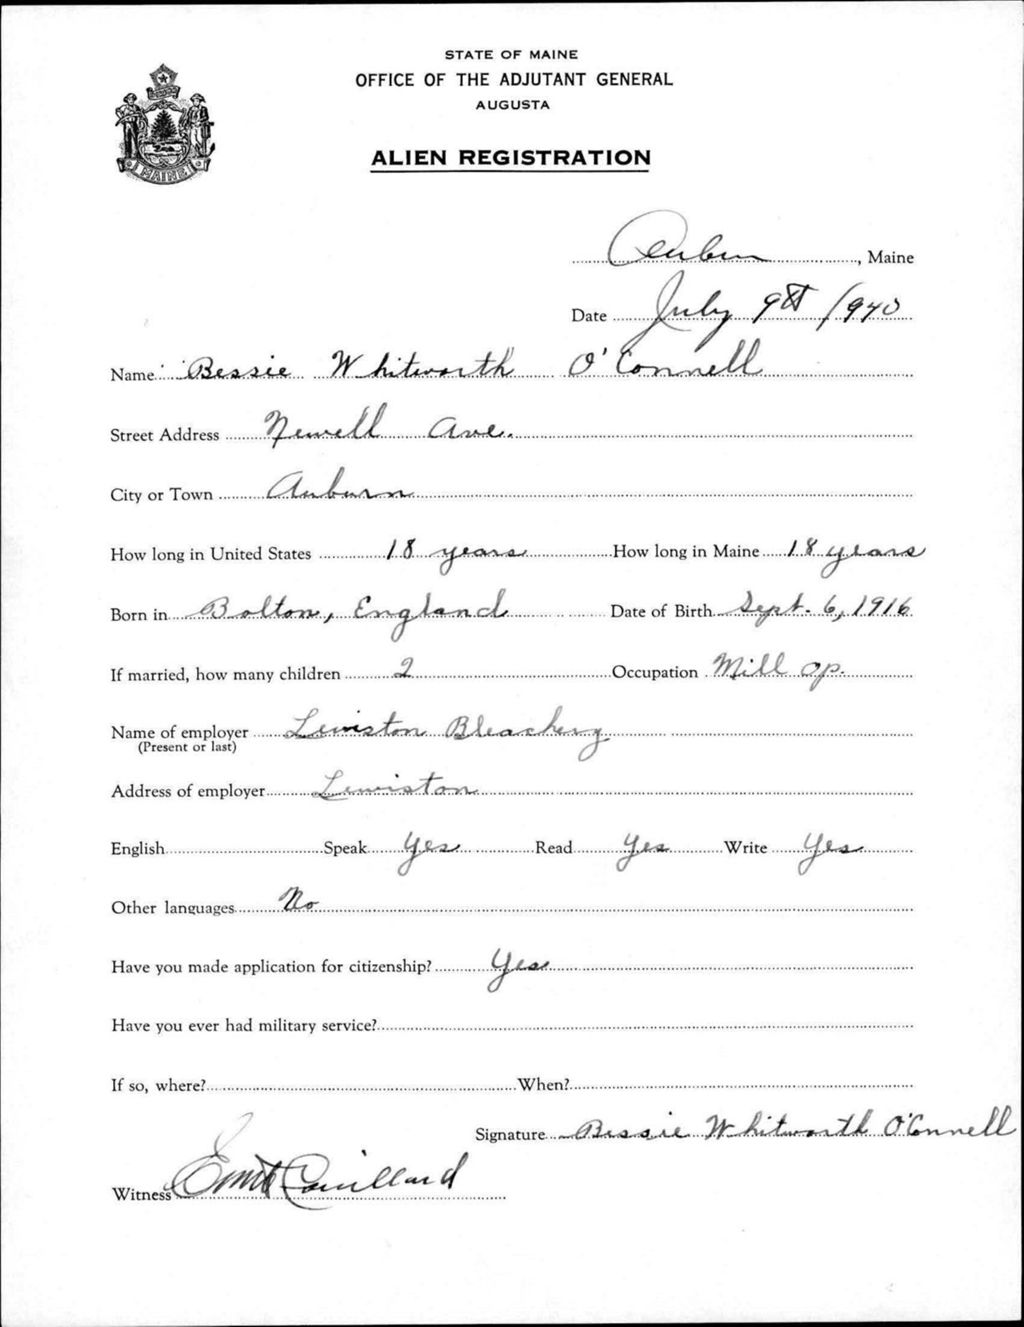 STATE OF MAINE
OFFICE OF THE ADJUTANT GENERAL
AUGUSTA
ALIEN REGISTRATION
MAINE
Auburn, Maine
Date July 9th 1940
Name Bessie Whitworth O'Connell
Street Address Newell Ave.
City or Town Auburn
How long in United States 18 years How long in Maine 18 years
Born in Bolton, England Date of Birth Sept. 6, 1916
If married, how many children 2 Occupation Mill op.
Name of employer Lewiston Bleachery
(Present or last)
Address of employer Lewiston
English Speak Yes Read Yes Write Yes
Other languages No
Have you made application for citizenship? Yes
Have you ever had military service?
If so, where? When?
Signature Bessie Whitworth O'Connell
Witness Couillard